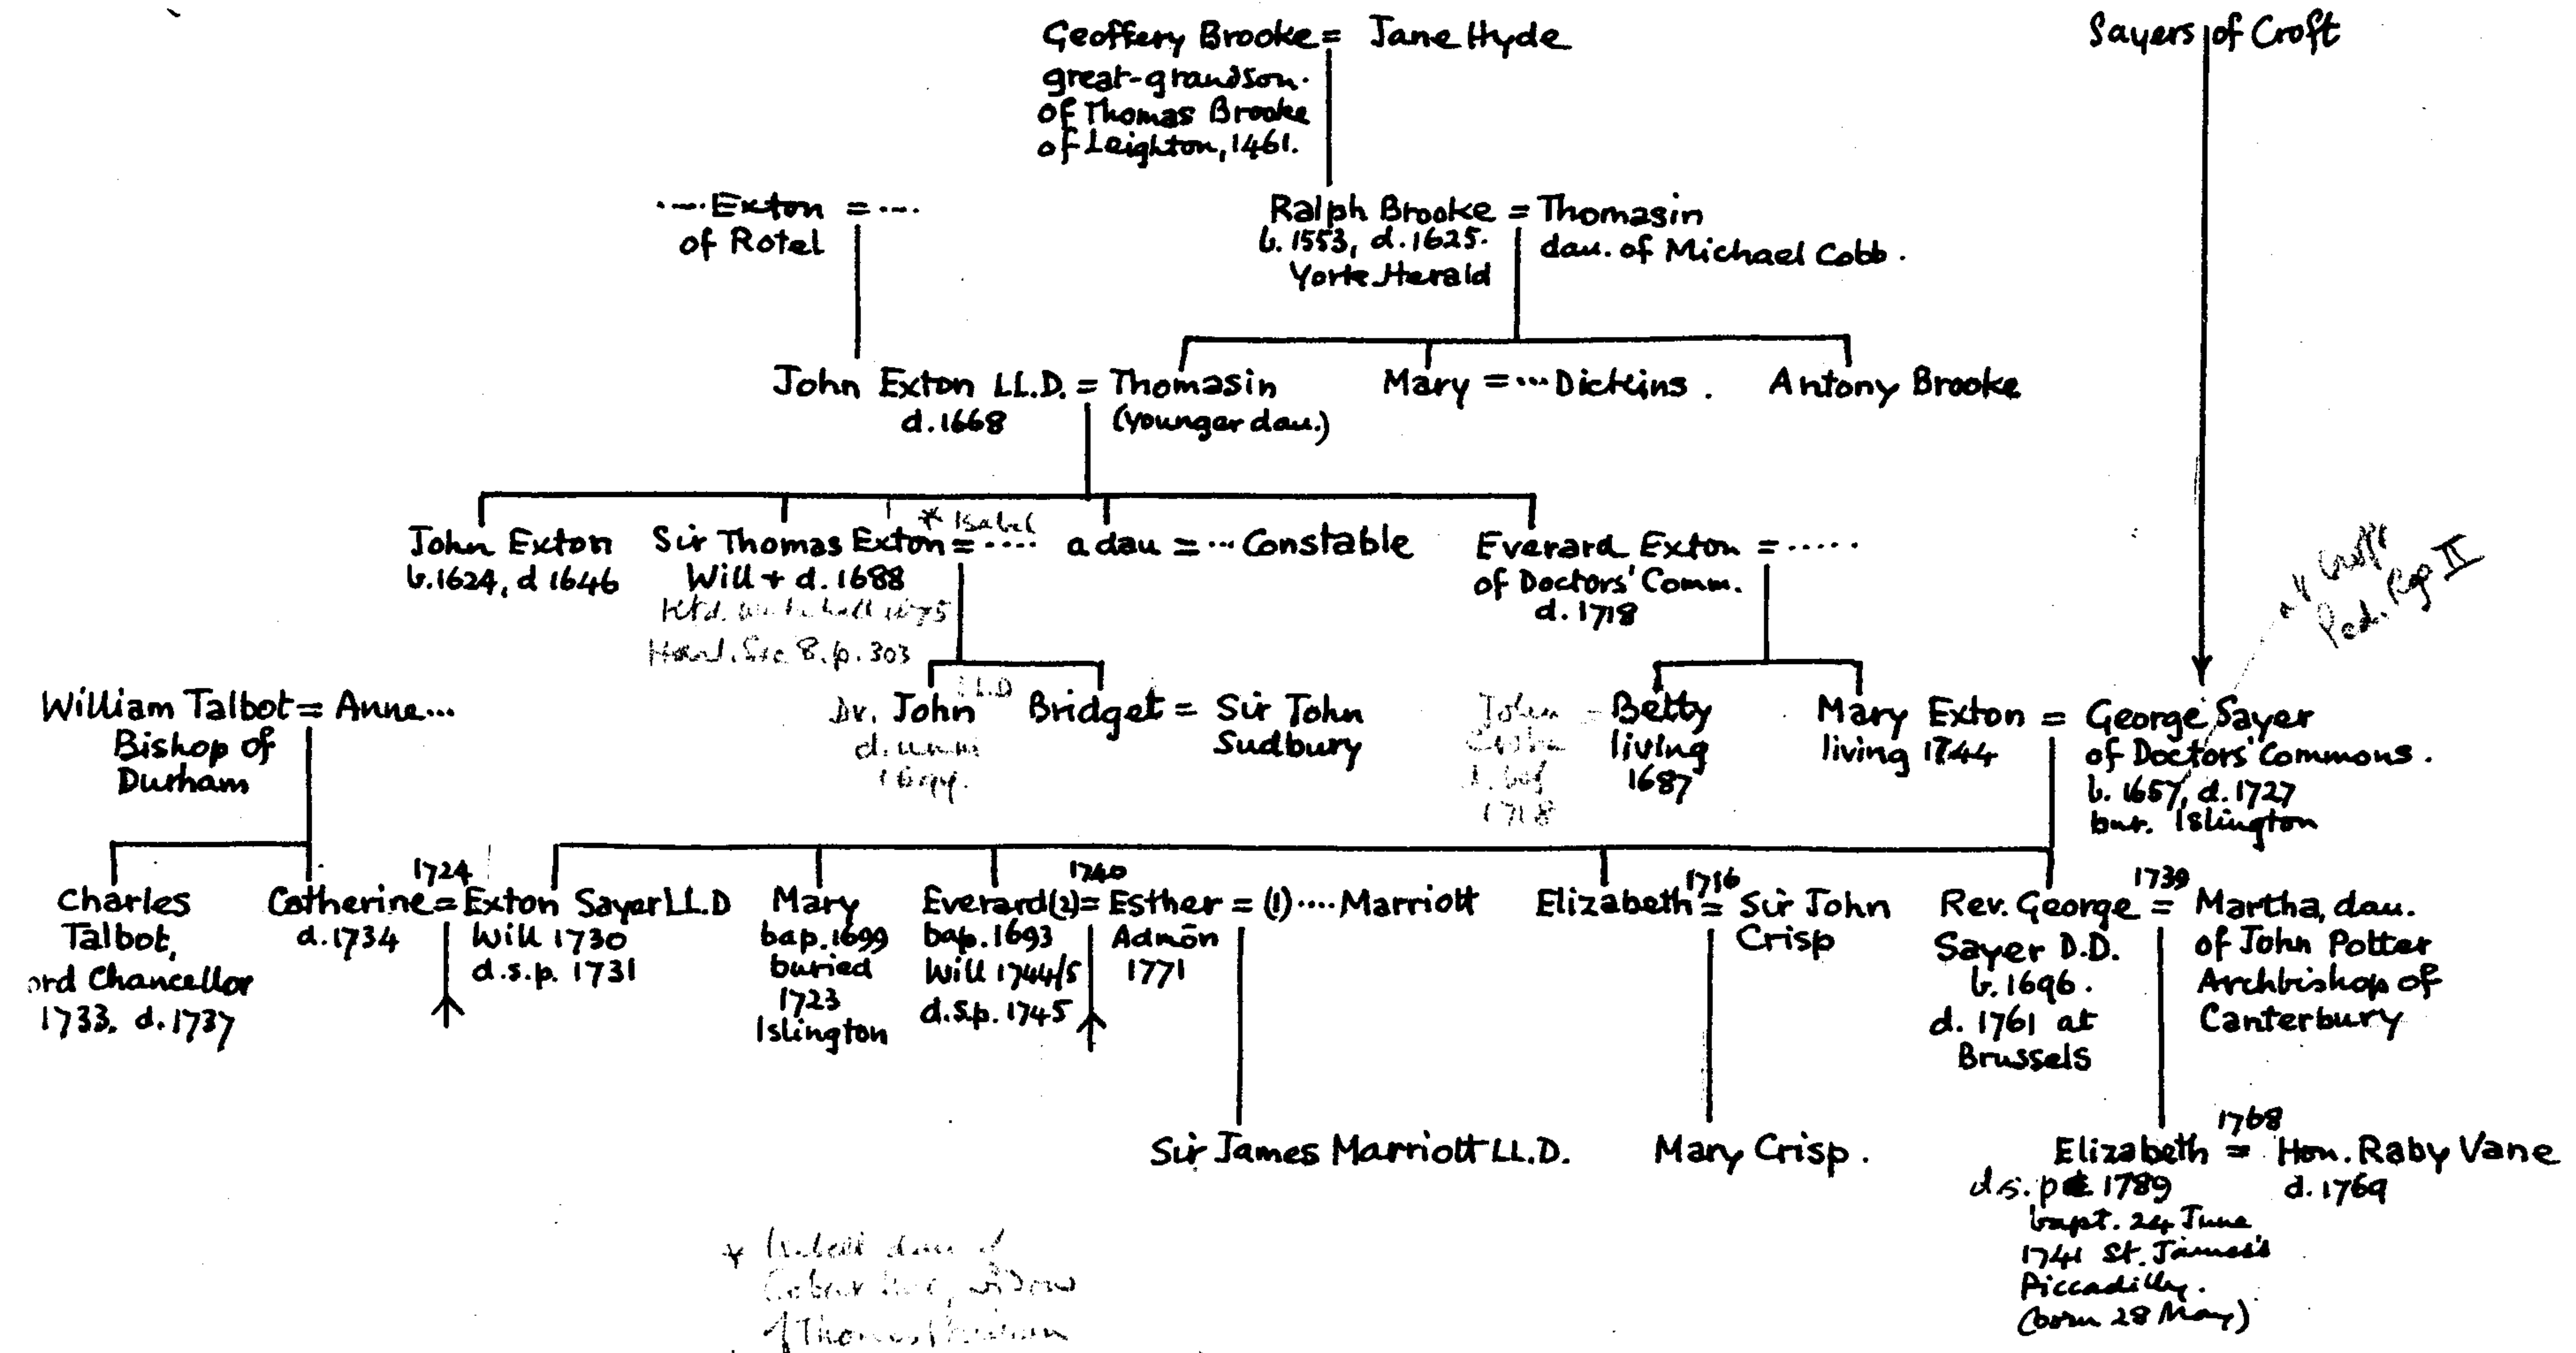 Geoffery Brooke = Jane Hyde
great-grandson
of Thomas Brooke
of Leighton, 1461.
Sayers of Croft
.... Exton = ....
of Rotel
Ralph Brooke = Thomasin
b. 1553, d. 1625.
York Herald
dau. of Michael Cobb.
John Exton LL.D. = Thomasin
d. 1668
(younger dau.)
Mary = ... Dickins.
Antony Brooke
John Exton
b. 1624, d 1646
* Isabel
Sir Thomas Exton = ....
Will + d. 1688
1675
8. p. 303
a dau = ... Constable
Everard Exton = .....
of Doctors' Comm.
d. 1718
Croft
Ped. II
William Talbot = Anne...
Bishop of
Durham
LL.D
Dr. John
d.
Bridget = Sir John
Sudbury
John
1718
= Betty
living
1687
Mary Exton = George Sayer
living 1744
of Doctors' Commons.
b. 1657, d. 1727
bur. Islington
Charles
Talbot,
ord Chancellor
1733, d. 1737
1724
Catherine = Exton Sayer LL.D
d. 1734
Will 1730
d.s.p. 1731
Mary
bap. 1699
buried
1723
Islington
1740
Everard (2) = Esther = (1) .... Marriott
bap. 1693
Will 1744/5
d.s.p. 1745
Admōn
1771
1716
Elizabeth = Sir John
Crisp
1739
Rev. George = Martha, dau.
Sayer D.D.
b. 1696.
d. 1761 at
Brussels
of John Potter
Archbishop of
Canterbury
Sir James Marriott LL.D.
Mary Crisp.
1768
Elizabeth = Hon. Raby Vane
d.s.p 1789
d. 1769
bapt. 24 June
1741 St. James's
Piccadilly.
(born 28 May)
* dau of
widow
of Thomas